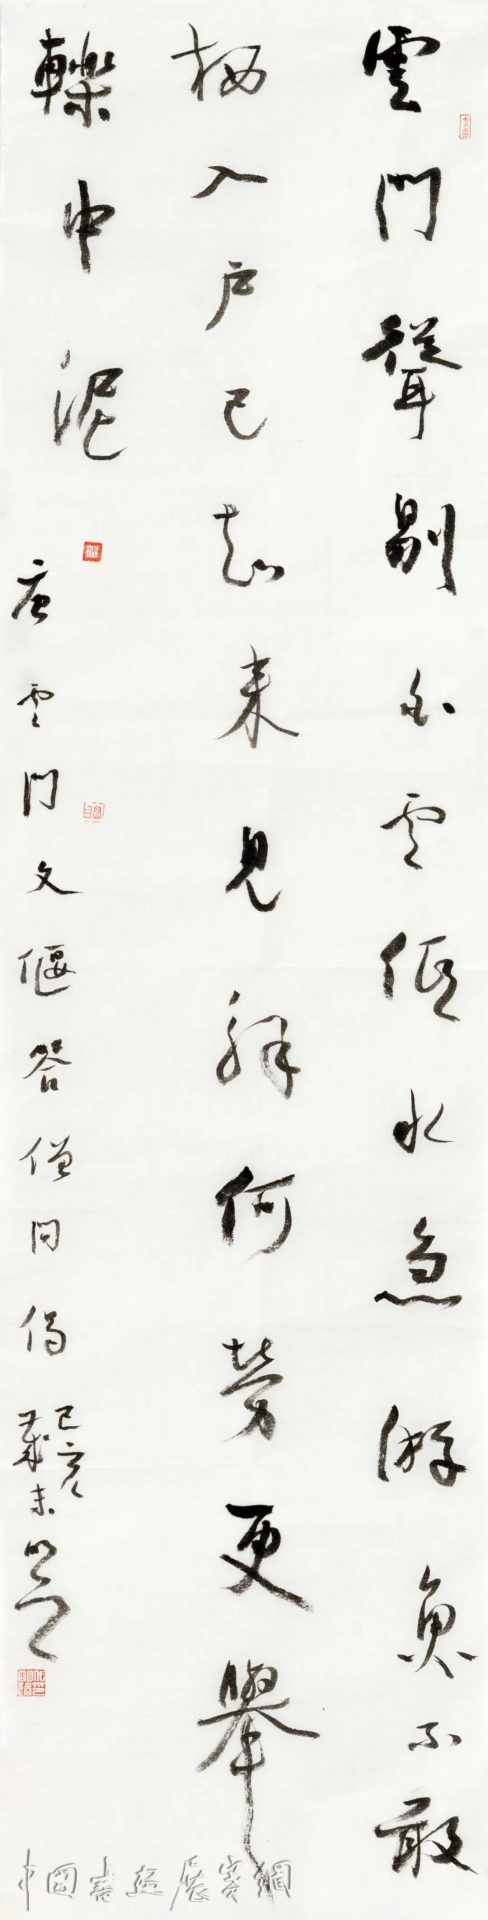 雲門聳剔白雲低水急游魚不敢
栖入户已知來見解何勞更舉
轢中泥
唐雲門文偃答僧問偈
己亥
歲末
中國書画展賽網